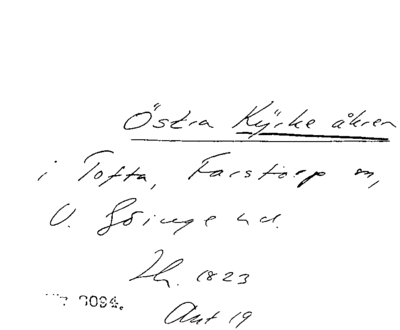 Östra Kÿrke åkren
i Tofta, Farstorp sn,
V. Göinge hd.
Lh. 1823
9094.
Akt 19